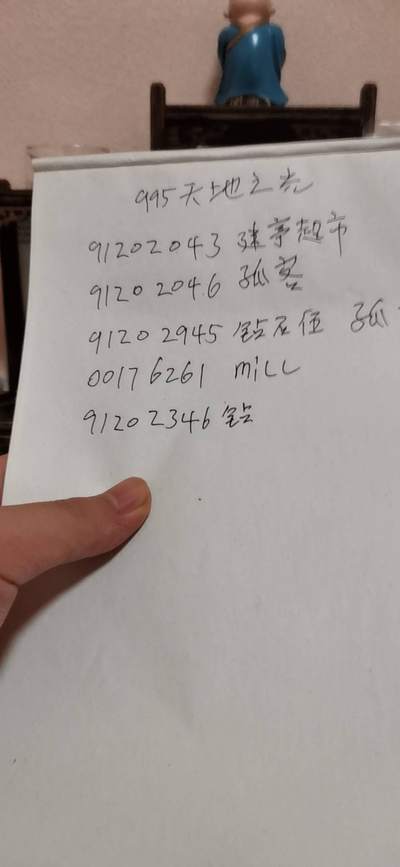 995天地之光
91202043 珠亭超市
91202046 孤客
91202945 钻石伍 孤
00176261 mill
91202346 钻